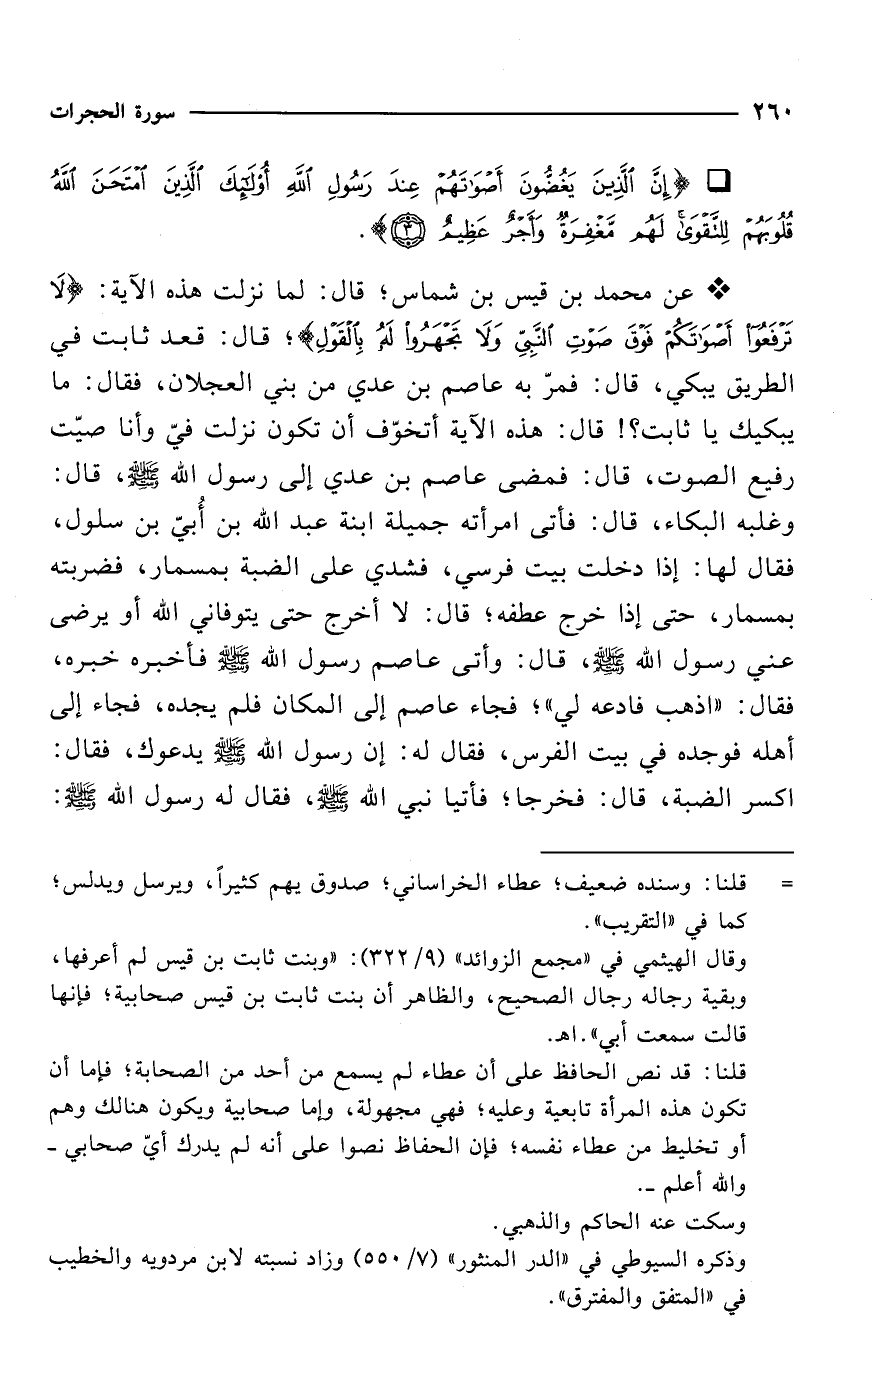 ٢٦٠ سورة الحجرات
❑ ﴿إِنَّ ٱلَّذِينَ يَغُضُّونَ أَصْوَٰتَهُمْ عِندَ رَسُولِ ٱللَّهِ أُوْلَٰٓئِكَ ٱلَّذِينَ ٱمْتَحَنَ ٱللَّهُ
قُلُوبَهُمْ لِلتَّقْوَىٰۚ لَهُم مَّغْفِرَةٌ وَأَجْرٌ عَظِيمٌ ٣﴾.
❖ عن محمد بن قيس بن شماس؛ قال: لما نزلت هذه الآية: ﴿لَا
تَرْفَعُوٓاْ أَصْوَٰتَكُمْ فَوْقَ صَوْتِ ٱلنَّبِىِّ وَلَا تَجْهَرُواْ لَهُۥ بِٱلْقَوْلِ﴾؛ قال: قعد ثابت في
الطريق يبكي، قال: فمرّ به عاصم بن عدي من بني العجلان، فقال: ما
يبكيك يا ثابت؟! قال: هذه الآية أتخوّف أن تكون نزلت فيّ وأنا صيّت
رفيع الصوت، قال: فمضى عاصم بن عدي إلى رسول الله ﷺ، قال:
وغلبه البكاء، قال: فأتى امرأته جميلة ابنة عبد الله بن أُبيّ بن سلول،
فقال لها: إذا دخلت بيت فرسي، فشدي على الضبة بمسمار، فضربته
بمسمار، حتى إذا خرج عطفه؛ قال: لا أخرج حتى يتوفاني الله أو يرضى
عني رسول الله ﷺ، قال: وأتى عاصم رسول الله ﷺ فأخبره خبره،
فقال: «اذهب فادعه لي»؛ فجاء عاصم إلى المكان فلم يجده، فجاء إلى
أهله فوجده في بيت الفرس، فقال له: إن رسول الله ﷺ يدعوك، فقال:
اكسر الضبة، قال: فخرجا؛ فأتيا نبي الله ﷺ، فقال له رسول الله ﷺ:
= قلنا: وسنده ضعيف؛ عطاء الخراساني؛ صدوق يهم كثيراً، ويرسل ويدلس؛
كما في «التقريب».
وقال الهيثمي في «مجمع الزوائد» (٩/ ٣٢٢): «وبنت ثابت بن قيس لم أعرفها،
وبقية رجاله رجال الصحيح، والظاهر أن بنت ثابت بن قيس صحابية؛ فإنها
قالت سمعت أبي».اهـ.
قلنا: قد نص الحافظ على أن عطاء لم يسمع من أحد من الصحابة؛ فإما أن
تكون هذه المرأة تابعية وعليه؛ فهي مجهولة، وإما صحابية ويكون هنالك وهم
أو تخليط من عطاء نفسه؛ فإن الحفاظ نصوا على أنه لم يدرك أيّ صحابي ـ
والله أعلم ـ.
وسكت عنه الحاكم والذهبي.
وذكره السيوطي في «الدر المنثور» (٧/ ٥٥٠) وزاد نسبته لابن مردويه والخطيب
في «المتفق والمفترق».